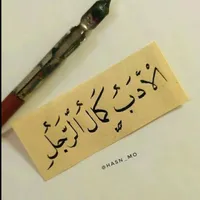 الأدَبُ كمالُ الرَّجُلِ
@HASN_MO